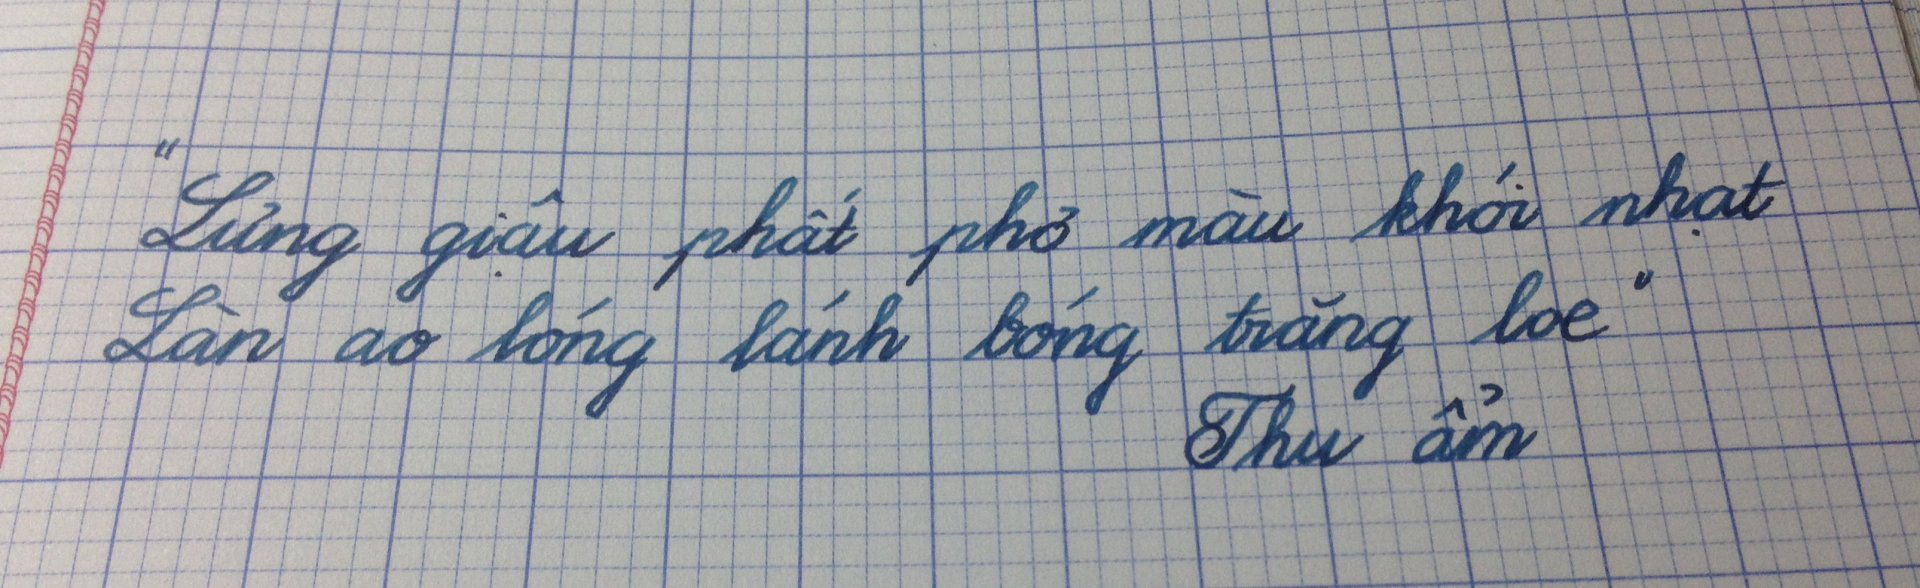 "Lưng giậu phất phơ màu khói nhạt
Làn ao lóng lánh bóng trăng loe"
Thu ẩm